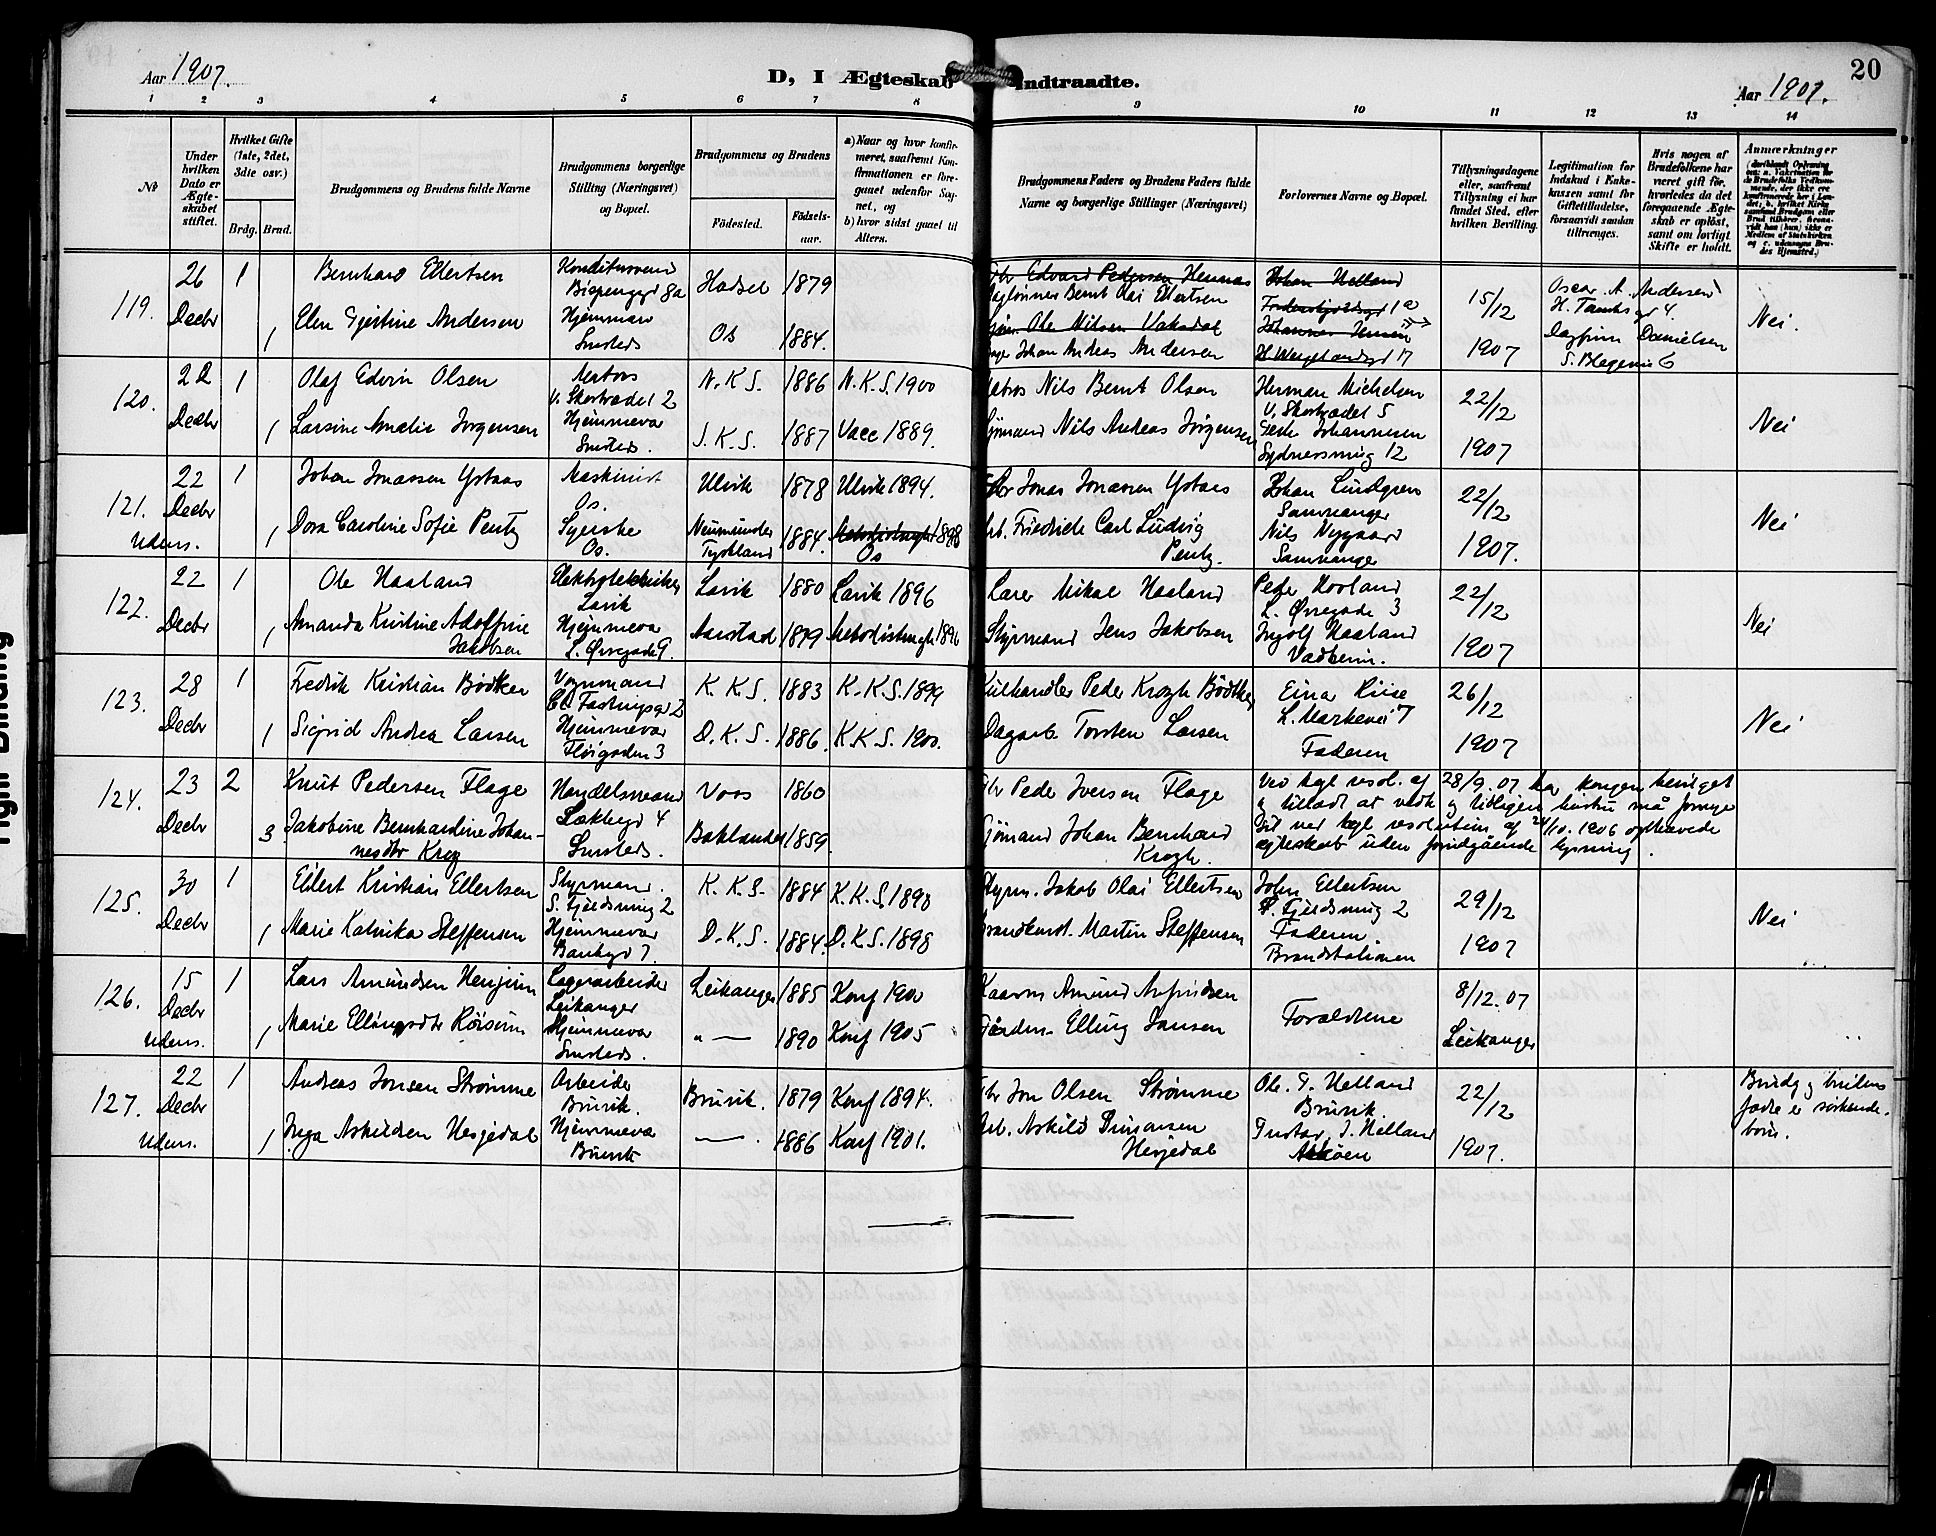 Aar 1907.
D, I Ægteskab Indtraadte.
Aar 1907.
20
1 2 3 4 5 6 7 8 9 10 11 12 13 14
№
Under hvilken Dato er Ægteskabet stiftet.
Hvilket Gifte (1ste, 2det, 3die osv.)
Brdg. Brud.
Brudgommens og Brudens fulde Navne
Brudgommens borgerlige Stilling (Næringsvei) og Bopæl.
Brudgommens og Brudens
Födested. Födselsaar.
a) Naar og hvor konfirmeret, saafremt Konfirmationen er foregaaet udenfor Sognet, og
b) hvor sidst gaaet til Alters.
Brudgommens Faders og Brudens Faders fulde Navne og borgerlige Stillinger (Næringsvei)
Forlovernes Navne og Bopæl.
Tillysningsdagene eller, saafremt Tillysning ei har fundet Sted, efter hvilken Bevilling.
Legitimation for Indskud i Enkekassen samt for Giftetilladelse, forsaavidt saadan tiltrænges.
Hvis nogen af Brudefolkene har været gift för, hvorledes da det foregaaende Ægteskab er oplöst, samt om lovligt Skifte er holdt.
Anmærkninger
119. 26 Decbr 1 Bernhard Ellertsen
Bispenggd 8a Hadsel 1879
Edvard Pedersen Hennas
Daglønner Bernt Olai Ellertsen
Johan Helland
15/12 1907
Oscar A. Andersen
H. Tanks gd 4.
Nei.
1 Elen Gjertine Andersen
Hjemmev
Smsteds Os 1884.
Ole Nilsen Vaksdal
Johan Andreas Andersen
H. Wergelandsgd 17
Dagfinn Danielsen
120. 22 Decbr 1 Olaf Edvin Olsen
V. Skostrædet 2
N.K.S. 1886 N.K.S. 1900
Matros Nils Bernt Olsen
Herman Michelsen
V. Skostrædet 5
22/12 1907
Nei
1 Larsine Amalie Jørgensen
Hjemmevær
Smsteds.
S.K.S. 1887 Vacc 1889.
Sjømand Nils Andreas Jørgensen
Johannesen
Sydnessmug 12
121. Udens. 22 Decbr 1 Johan Jonassen Ystaas
Maskinist
Os.
Ulvik 1878 Ulvik 1894.
Gbr Jonas Jonassen Ystaas
Johan Lindgren
Samnanger
22/12 1907.
Nei
1 Dora Caroline Sofie Pentz
Syerske
Os.
Neumünster
Tyskland 1884. Metodistmght 1898
Os
Arb. Friedrich Carl Ludvig Pentz.
Nils Nygaard
Samnanger
122. 22 Decbr 1 Ole Haaland
Elektrotekniker
Lavik
Lavik 1880 Lavik 1896
Lærer Mikal Haaland
Peder Haaland
L. Øvregade 3
22/12 1907
Nei
1 Amanda Kristine Adolfine Jakobsen
Hjemmevær
L. Øvregade 9.
Aarstad 1879 Metodistmght 1896
Styrmand Jens Jakobsen
Ingolf Haaland
Vadheim.
123. 28 Decbr 1 Fredrik Kristian Bödtker
Vognmand
K.K.S. 1883 K.K.S. 1899
Kulhandler Peder Krogh Bödtker
Einar Riise
L. Markevei 7
26/12 1907
Nei
1 Sigrid Andrea Larsen
Hjemmevær
Fløigaden 3
D.K.S. 1886. K.K.S. 1900.
Dagarb. Torsten Larsen
Faderen
124. 23 Decbr 2 Knut Pedersen Flage
Handelsmand
Voss 1860
Gbr Peder Iversen Flage
Ved kgl. resol. af 28/9.07. har kongen bevilget
og tilladt at vedk. og tidligere hustru må fornye
sit ved kgl. resolution af 24/10.1906 ophævede
ægteskab uden forudgående lysning.
3 Jakobine Bernhardine Johannesdtr Krog
Smsteds.
Baklandet 1859.
Sjømand Johan Bernhard Krogh.
125. 30 Decbr 1 Eilert Kristian Ellertsen
Styrmand.
S. Fjeldsmug 2
K.K.S. 1884 K.K.S. 1898
Styrm. Jakob Olai Ellertsen
John Ellertsen
S. Fjeldsmug 2
29/12 1907
Nei
1 Marie Katinka Steffensen
Hjemmevær
Bankgd 7.
D.K.S. 1884. D.K.S. 1898
Brandkonst. Martin Steffensen
Faderen.
Brandstationen
126. Udens. 15 Decbr 1 Lars Amundsen Henjum
Lagerarbeider
Leikanger
Leikanger 1885 Konf 1900
Kaarm Amund Anfindsen
Forældrene
8/12.07
Leikanger
1 Marie Ellingsdtr Röisum
Hjemmevær
Smsteds.
" — 1890 Konf 1905
Gaardm. Elling Jansen
127. Udens. 22 Decbr 1 Andreas Jonsen Strømme
Arbeider
Bruvik.
Bruvik. 1879 Konf 1894.
Gbr Jon Olsen Strømme
Ole T. Helland
Bruvik.
22/12 1907.
Brudg og brudens
fødte er
1 Inga Askildsen Hesjedal
Hjemmevær
Bruvik
—. 1886 Konf 1901.
Arb. Askild Simonsen Hesjedal
Gustav J. Helland
Askøen